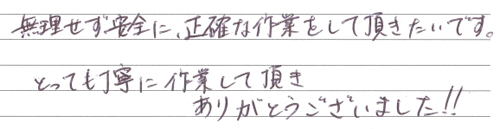 無理せず安全に、正確な作業をして頂きたいです。
とっても丁寧に作業して頂き
ありがとうございました!!